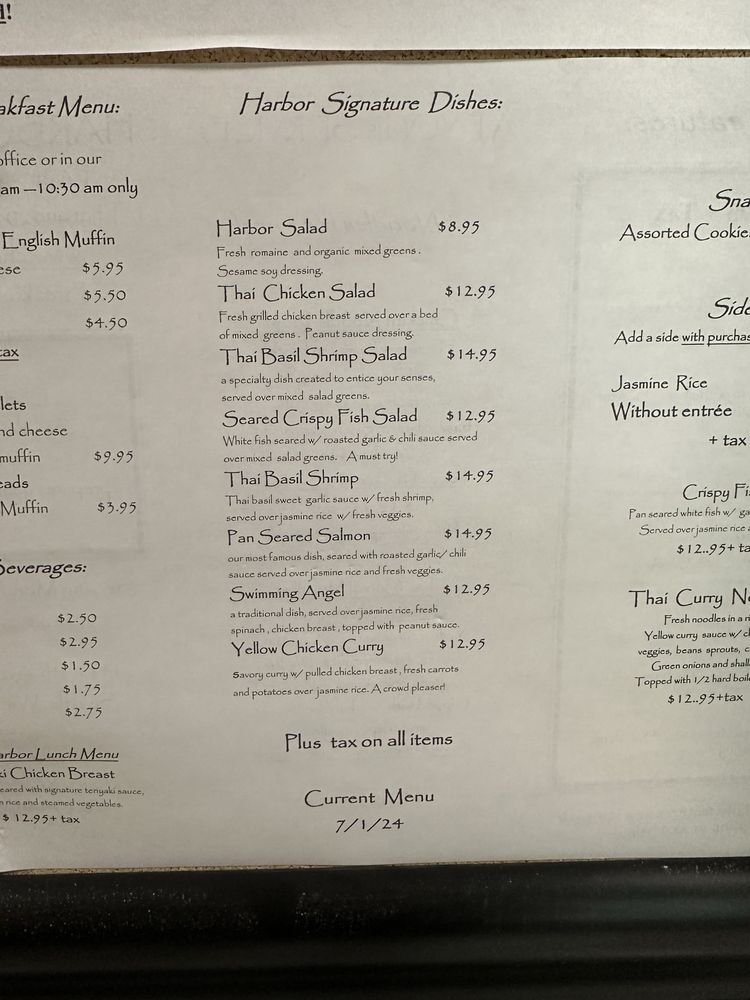 akfast Menu:
office or in our
am —10:30 am only
English Muffin
ese $5.95
$5.50
$4.50
tax
lets
nd cheese
muffin $9.95
eads
Muffin $3.95
Beverages:
$2.50
$2.95
$1.50
$1.75
$2.75
arbor Lunch Menu
ki Chicken Breast
eared with signature teriyaki sauce,
n rice and steamed vegetables.
$ 12.95+ tax
Harbor Signature Dishes:
Harbor Salad $8.95
Fresh romaine and organic mixed greens .
Sesame soy dressing.
Thai Chicken Salad $12.95
Fresh grilled chicken breast served over a bed
of mixed greens . Peanut sauce dressing.
Thai Basil Shrimp Salad $14.95
a specialty dish created to entice your senses,
served over mixed salad greens.
Seared Crispy Fish Salad $12.95
White fish seared w/ roasted garlic & chili sauce served
over mixed salad greens. A must try!
Thai Basil Shrimp $14.95
Thai basil sweet garlic sauce w/ fresh shrimp,
served over jasmine rice w/ fresh veggies.
Pan Seared Salmon $14.95
our most famous dish, seared with roasted garlic/ chili
sauce served over jasmine rice and fresh veggies.
Swimming Angel $12.95
a traditional dish, served over jasmine rice, fresh
spinach , chicken breast , topped with peanut sauce.
Yellow Chicken Curry $12.95
Savory curry w/ pulled chicken breast , fresh carrots
and potatoes over jasmine rice. A crowd pleaser!
Plus tax on all items
Current Menu
7/1/24
Sna
Assorted Cookie
Side
Add a side with purchas
Jasmine Rice
Without entrée
+ tax
Crispy Fi
Pan seared white fish w/ ga
Served over jasmine rice a
$12..95+ ta
Thai Curry No
Fresh noodles in a ri
Yellow curry sauce w/ ch
veggies, beans sprouts, c
Green onions and shall
Topped with 1/2 hard boile
$12..95+tax